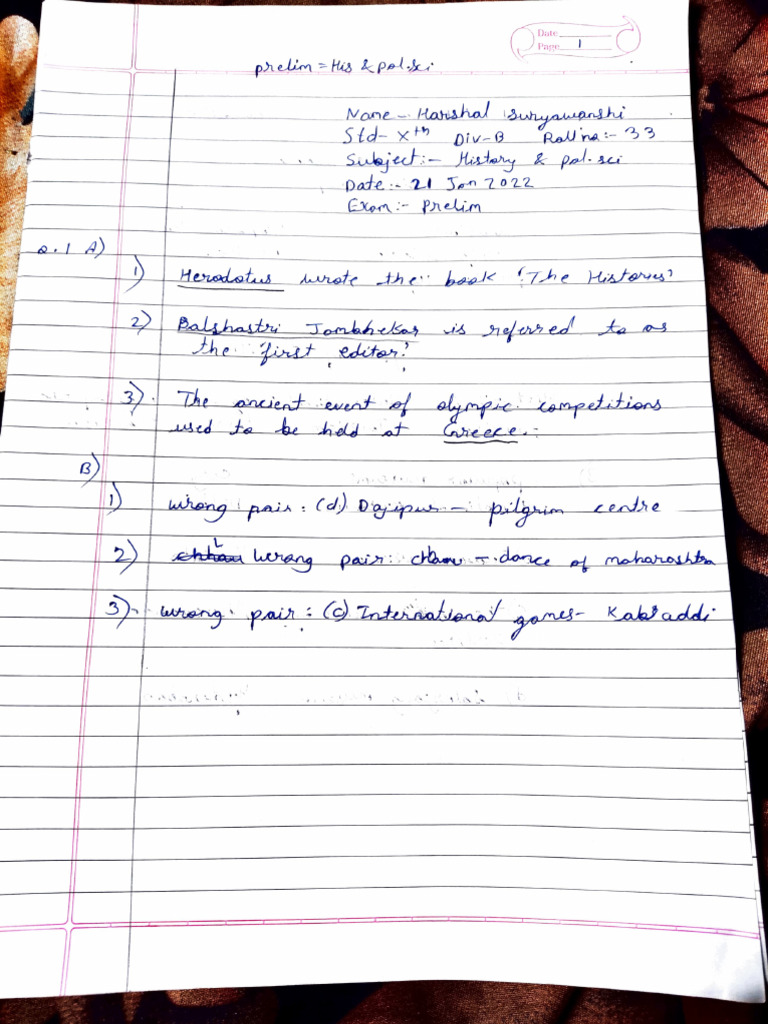 Date
Page 1
prelim = His & pol.sci
Name - Harshal Suryawanshi
Std - Xth Div-B Roll no:- 33
Subject:- History & pol.sci
Date:- 21 Jan 2022
Exam:- Prelim
Q.1 A)
1) Herodotus wrote the book 'The Histories'
2) Balshastri Jambhekar is referred to as
the 'first editor'.
3) The ancient event of olympic competitions
used to be held at Greece.
B)
1) wrong pair: (d) Dajipur - pilgrim centre
2) Wrong pair: - dance of maharashtra
3) wrong pair: (c) International games - Kabaddi